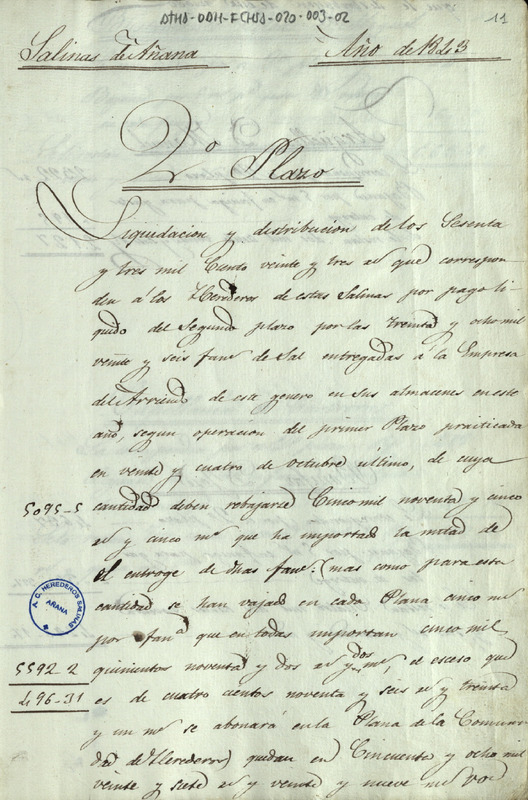 ATHA-DAH-FCHSA-020-003-02
11
Salinas de Añana Año de 1843
2º Plazo
Liquidacion y distribucion de los Sesenta
y tres mil Ciento veinte y tres rs que correspon
den á los Herederos de estas Salinas por pago li
quido del Segundo plazo por las treinta y ocho mil
veinte y seis fans de Sal entregadas á la Empresa
del Arriendo de este genero en sus almacenes en este
año, segun operacion del primer Plazo practicada
en veinte y cuatro de octubre último, de cuya
5095-5 cantidad deben rebajarse Cinco mil noventa y cinco
rs y cinco ms que ha importado la mitad de
el entroge de dhas fans: (mas como para esta
cantidad se han vajado en cada Plana cinco ms
por fana que en todas importan cinco mil
5592 2 quinientos noventa y dos rs y dos ms, el esceso que
496-31 es de cuatro cientos noventa y seis rs y treinta
y un ms se abonará en la Plana de la Comuni
dad de Herederos) quedan en Cincuenta y ocho mil
veinte y siete rs y veinte y nueve ms von
A. C. HEREDEROS SALINAS
AÑANA